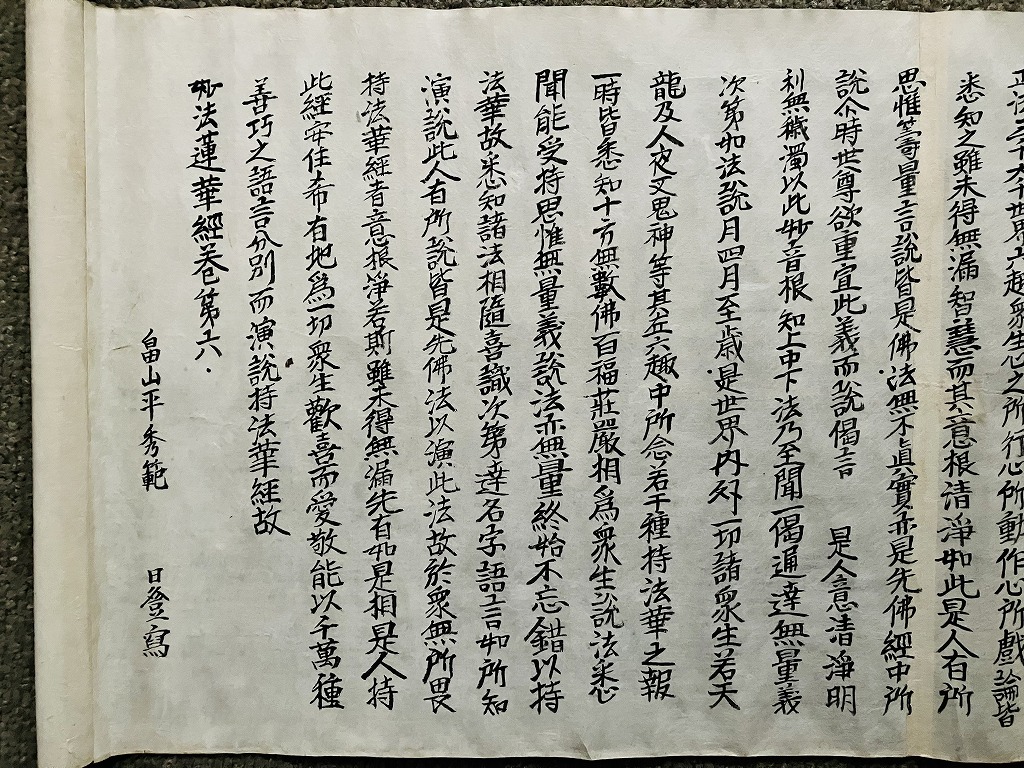 悉知之雖未得無漏智慧而其六意根清淨如此是人有所
思惟籌量言說皆是佛法無不真實亦是先佛經中所
說尒時世尊欲重宣此義而說偈言 是人意清淨明
利無穢濁以此妙音根知上中下法乃至聞一偈通達無量義
次第如法說月四月至歲是世界內外一切諸衆生若天
龍及人夜叉鬼神等其在六趣中所念若干種持法華之報
一時皆悉知十方無數佛百福莊嚴相為衆生說法悉
聞能受持思惟無量義說法亦無量終始不忘錯以持
法華故悉知諸法相隨喜識次第達名字語言如所知
演說此人有所說皆是先佛法以演此法故於衆無所畏
持法華經者意根淨若斯雖未得無漏先有如是相是人持
此經安住希有地為一切衆生歡喜而愛敬能以千萬種
善巧之語言分別而演說持法華經故
妙法蓮華經卷第六
畠山平秀範 日登寫